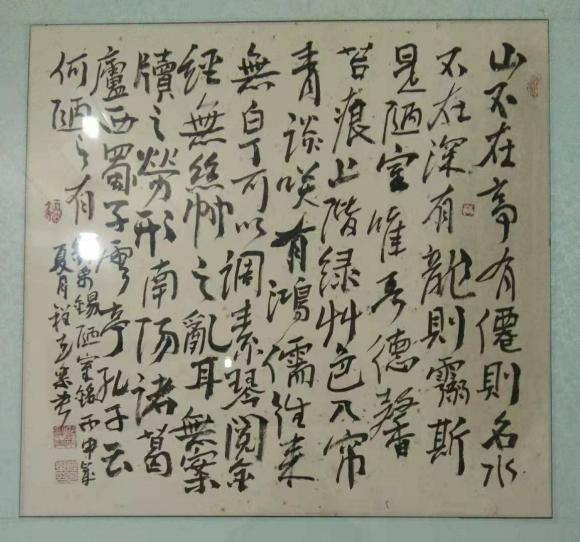 山不在高有僊則名水
不在深有龍則靈斯
是陋室唯吾德馨
苔痕上階緑艸色入帘
青談咲有鴻儒往来
無白丁可以調素琴閲金
經無絲竹之亂耳無案
牘之勞形南陽諸葛
廬西蜀子雲亭孔子云
何陋之有
劉禹錫陋室銘丙申年
夏月程書